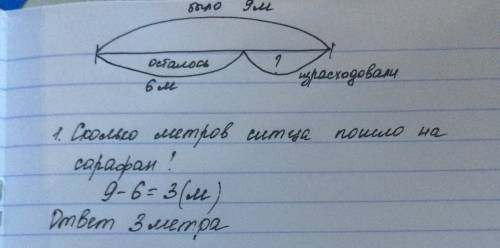 было 9 м
осталось ? израсходовали
6 м
1. Сколько метров ситца пошло на
сарафан!
9-6=3(м)
Ответ 3 метра